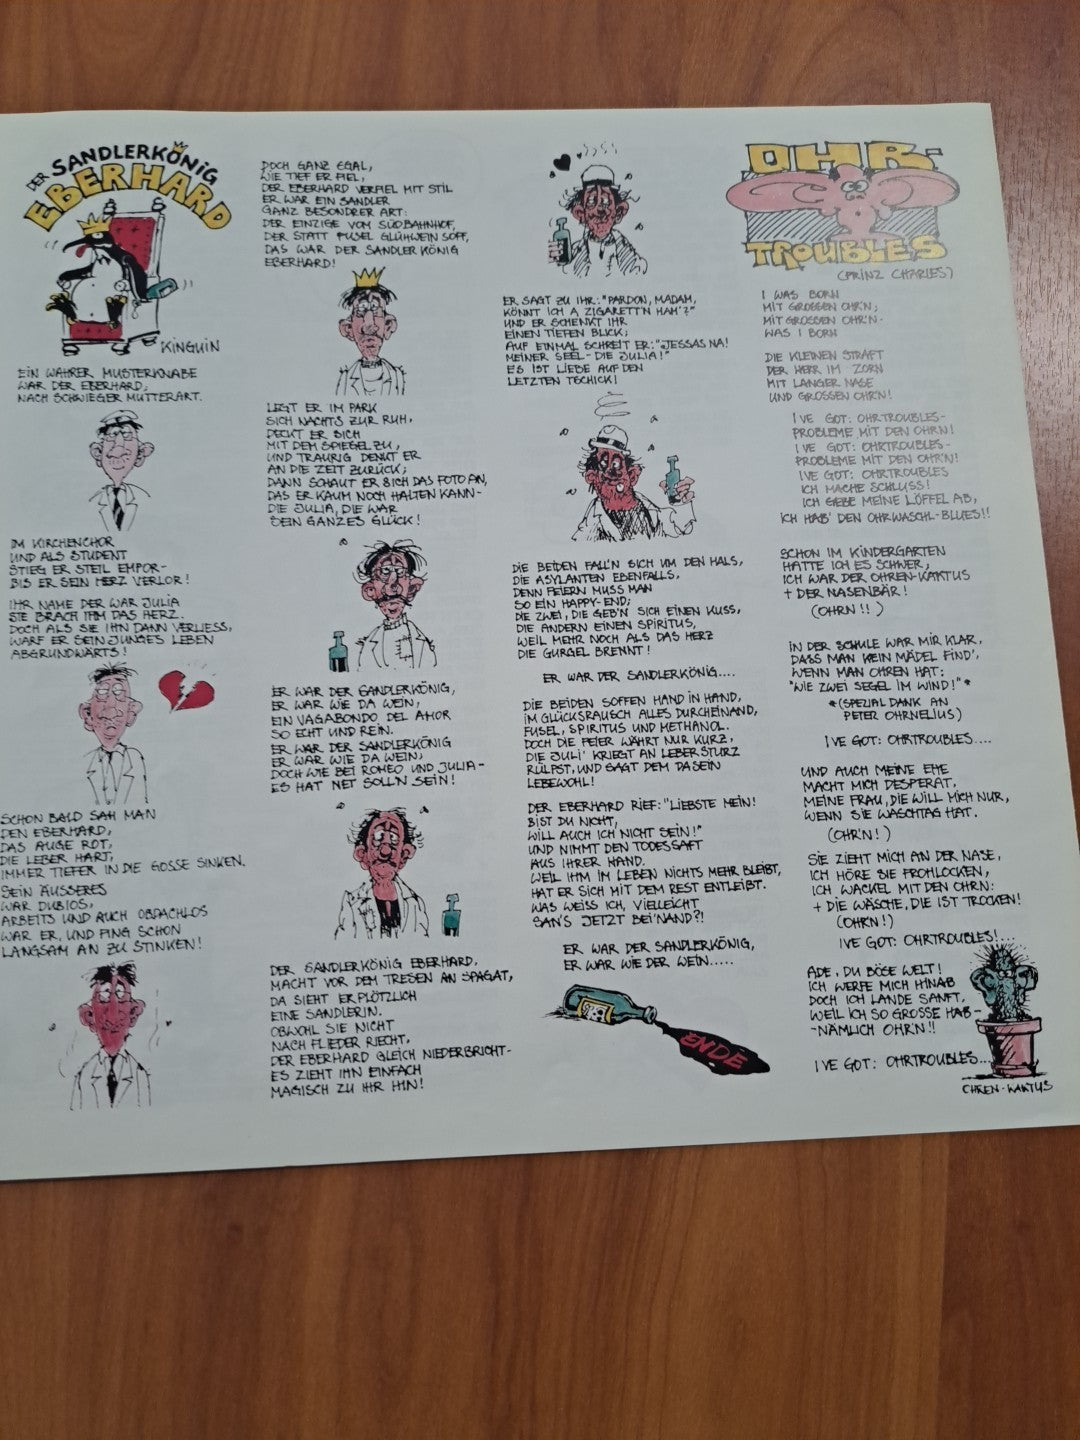 DER SANDLERKÖNIG
EBERHARD
KINGUIN
EIN WAHRER MUSTERKNABE
WAR DER EBERHARD,
NACH SCHWIEGER MUTTERART.
IM KIRCHENCHOR
UND ALS STUDENT
STIEG ER STEIL EMPOR-
BIS ER SEIN HERZ VERLOR!
IHR NAME DER WAR JULIA
SIE BRACH IHM DAS HERZ.
DOCH ALS SIE IHN DANN VERLIESS,
WARF ER SEIN JUNGES LEBEN
ABGRUNDWÄRTS!
SCHON BALD SAH MAN
DEN EBERHARD,
DAS AUGE ROT,
DIE LEBER HART,
IMMER TIEFER IN DIE GOSSE SINKEN.
SEIN ÄUSSERES
WAR DUBIOS,
ARBEITS UND AUCH OBDACHLOS
WAR ER, UND FING SCHON
LANGSAM AN ZU STINKEN!
DOCH GANZ EGAL,
WIE TIEF ER FIEL,
DER EBERHARD VERFIEL MIT STIL
ER WAR EIN SANDLER
GANZ BESONDRER ART:
DER EINZIGE VOM SÜDBAHNHOF,
DER STATT FUSEL GLÜHWEIN SOFF,
DAS WAR DER SANDLER KÖNIG
EBERHARD!
LEGT ER IM PARK
SICH NACHTS ZUR RUH,
DECKT ER SICH
MIT DEM SPIEGEL ZU,
UND TRAURIG DENKT ER
AN DIE ZEIT ZURÜCK;
DANN SCHAUT ER SICH DAS FOTO AN,
DAS ER KAUM NOCH HALTEN KANN-
DIE JULIA, DIE WAR
SEIN GANZES GLÜCK!
ER WAR DER SANDLERKÖNIG,
ER WAR WIE DA WEIN,
EIN VAGABONDO DEL AMOR
SO ECHT UND REIN.
ER WAR DER SANDLERKÖNIG
ER WAR WIE DA WEIN,
DOCH WIE BEI ROMEO UND JULIA-
ES HAT NET SOLL'N SEIN!
DER SANDLERKÖNIG EBERHARD,
MACHT VOR DEM TRESEN AN SPAGAT,
DA SIEHT ER PLÖTZLICH
EINE SANDLERIN.
OBWOHL SIE NICHT
NACH FLIEDER RIECHT,
DER EBERHARD GLEICH NIEDERBRICHT-
ES ZIEHT IHN EINFACH
MAGISCH ZU IHR HIN!
ER SAGT ZU IHR: "PARDON, MADAM,
KÖNNT ICH A ZIGARETT'N HAM'?"
UND ER SCHENKT IHR
EINEN TIEFEN BLICK;
AUF EINMAL SCHREIT ER: "JESSAS NA!
MEINER SEEL - DIE JULIA!"
ES IST LIEBE AUF DEN
LETZTEN TSCHICK!
DIE BEIDEN FALL'N SICH UM DEN HALS,
DIE ASYLANTEN EBENFALLS,
DENN FEIERN MUSS MAN
SO EIN HAPPY-END;
DIE ZWEI, DIE GEB'N SICH EINEN KUSS,
DIE ANDERN EINEN SPIRITUS,
WEIL MEHR NOCH ALS DAS HERZ
DIE GURGEL BRENNT!
ER WAR DER SANDLERKÖNIG....
DIE BEIDEN SOFFEN HAND IN HAND,
IM GLÜCKSRAUSCH ALLES DURCHEINAND,
FUSEL, SPIRITUS UND METHANOL.
DOCH DIE FEIER WÄHRT NUR KURZ,
DIE JULI' KRIEGT AN LEBER STURZ
RÜLPST, UND SAGT DEM DASEIN
LEBEWOHL!
DER EBERHARD RIEF: "LIEBSTE MEIN!
BIST DU NICHT,
WILL AUCH ICH NICHT SEIN!"
UND NIMMT DEN TODESSAFT
AUS IHRER HAND.
WEIL IHM IM LEBEN NICHTS MEHR BLEIBT,
HAT ER SICH MIT DEM REST ENTLEIBT.
WAS WEISS ICH, VIELLEICHT
SAN'S JETZT BEI'NAND?!
ER WAR DER SANDLERKÖNIG,
ER WAR WIE DER WEIN.....
ENDE
OHR-
TROUBLES
(PRINZ CHARLES)
I WAS BORN
MIT GROSSEN OHR'N;
MIT GROSSEN OHR'N-
WAS I BORN
DIE KLEINEN STRAFT
DER HERR IM ZORN
MIT LANGER NASE
UND GROSSEN OHR'N!
I'VE GOT: OHRTROUBLES-
PROBLEME MIT DEN OHRN!
I'VE GOT: OHRTROUBLES-
PROBLEME MIT DEN OHR'N!
I'VE GOT: OHRTROUBLES
ICH MACHE SCHLUSS!
ICH GEBE MEINE LÖFFEL AB,
ICH HAB' DEN OHRWASCHL-BLUES!!
SCHON IM KINDERGARTEN
HATTE ICH ES SCHWER,
ICH WAR DER OHREN-KAKTUS
+ DER NASENBÄR!
(OHRN!!)
IN DER SCHULE WAR MIR KLAR,
DASS MAN KEIN MÄDEL FIND',
WENN MAN OHREN HAT:
"WIE ZWEI SEGEL IM WIND!"*
*(SPEZIAL DANK AN
PETER OHRNELIUS)
I'VE GOT: OHRTROUBLES....
UND AUCH MEINE EHE
MACHT MICH DESPERAT,
MEINE FRAU, DIE WILL MICH NUR,
WENN SIE WASCHTAG HAT.
(OHR'N!)
SIE ZIEHT MICH AN DER NASE,
ICH HÖRE SIE FROHLOCKEN,
ICH WACKEL MIT DEN OHRN:
+ DIE WÄSCHE, DIE IST TROCKEN!
(OHRN!)
I'VE GOT: OHRTROUBLES!...
ADE, DU BÖSE WELT!
ICH WERFE MICH HINAB
DOCH ICH LANDE SANFT,
WEIL ICH SO GROSSE HAB-
-NÄMLICH OHRN!!
I'VE GOT: OHRTROUBLES...
OHREN-KAKTUS